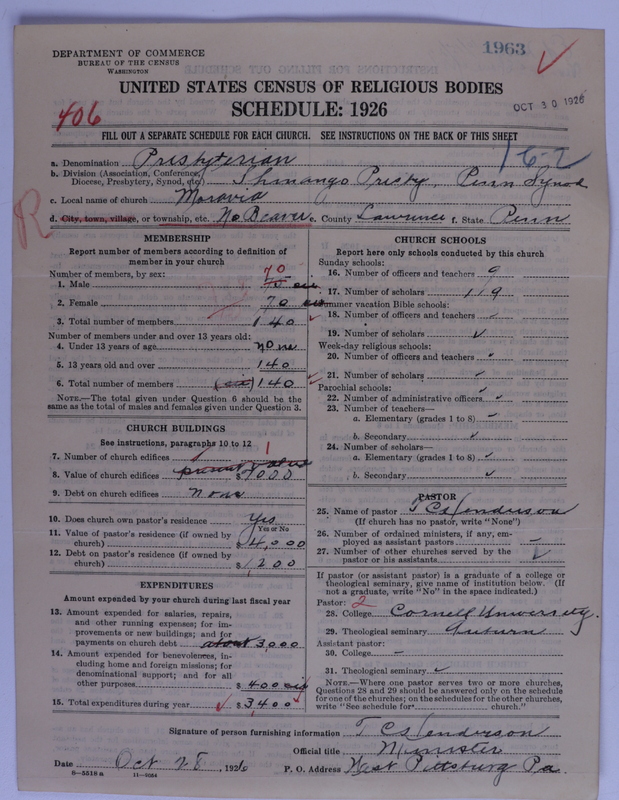 DEPARTMENT OF COMMERCE
BUREAU OF THE CENSUS
WASHINGTON
1963
UNITED STATES CENSUS OF RELIGIOUS BODIES
SCHEDULE: 1926
OCT 30 1926
406
FILL OUT A SEPARATE SCHEDULE FOR EACH CHURCH. SEE INSTRUCTIONS ON THE BACK OF THIS SHEET
16-2
a. Denomination Presbyterian
b. Division (Association, Conference, Diocese, Presbytery, Synod, etc.) Shenango Presby, Penn Synod
c. Local name of church Moravia
d. City, town, village, or township, etc. No Beaver e. County Lawrence f. State Penn
R
MEMBERSHIP
Report number of members according to definition of
member in your church
Number of members, by sex:
70
1. Male 70
2. Female 70
3. Total number of members 140
Number of members under and over 13 years old:
4. Under 13 years of age none
5. 13 years old and over 140
6. Total number of members 140
NOTE.—The total given under Question 6 should be the
same as the total of males and females given under Question 3.
CHURCH BUILDINGS
See instructions, paragraphs 10 to 12
7. Number of church edifices 1
present value
8. Value of church edifices $ 9000
9. Debt on church edifices none
10. Does church own pastor's residence Yes
Yes or No
11. Value of pastor's residence (if owned by
church) $ 4,000
12. Debt on pastor's residence (if owned by
church) $ 1200
EXPENDITURES
Amount expended by your church during last fiscal year
13. Amount expended for salaries, repairs,
and other running expenses; for im-
provements or new buildings; and for
payments on church debt about 3000
14. Amount expended for benevolences, in-
cluding home and foreign missions; for
denominational support; and for all
other purposes $ 400
15. Total expenditures during year $ 3400
CHURCH SCHOOLS
Report here only schools conducted by this church
Sunday schools:
16. Number of officers and teachers 9
17. Number of scholars 119
Summer vacation Bible schools:
18. Number of officers and teachers
19. Number of scholars
Week-day religious schools:
20. Number of officers and teachers
21. Number of scholars
Parochial schools:
22. Number of administrative officers
23. Number of teachers—
a. Elementary (grades 1 to 8)
b. Secondary
24. Number of scholars—
a. Elementary (grades 1 to 8)
b. Secondary
PASTOR
25. Name of pastor T C Henderson
(If church has no pastor, write "None")
26. Number of ordained ministers, if any, em-
ployed as assistant pastors –
27. Number of other churches served by the
pastor or his assistants
If pastor (or assistant pastor) is a graduate of a college or
theological seminary, give name of institution below. (If
not a graduate, write "No" in the space indicated.)
Pastor: 2
28. College Cornell University.
29. Theological seminary Auburn
Assistant pastor:
30. College –
31. Theological seminary
NOTE.—Where one pastor serves two or more churches,
Questions 28 and 29 should be answered only on the schedule
for one of the churches; on the schedules for the other churches,
write "See schedule for church."
Signature of person furnishing information T C Henderson
Official title Minister
Date Oct 28, 1926 P. O. Address West Pittsburg Pa.
8—5518 a 11—9054